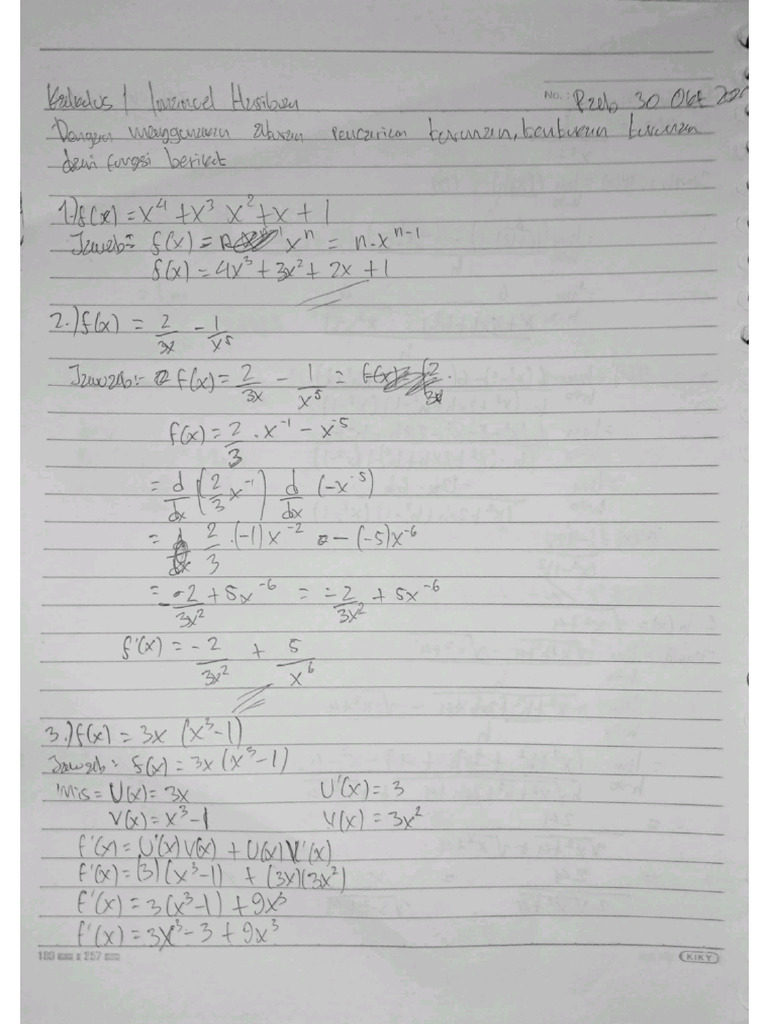 Kalkulus 1 Immanuel Hasibuan
NO.: Rab 30 Okt
Dengan menggunakan aturan pencarian turunan, tentukan turunan
dari fungsi berikut
1.) f(x) = x⁴ + x³ x² + x + 1
Jawab = f(x) = xⁿ = n·xⁿ⁻¹
f(x) = 4x³ + 3x² + 2x + 1
2.) f(x) = 2/3x - 1/x⁵
Jawab: f(x) = 2/3x - 1/x⁵ =
f(x) = 2/3 · x⁻¹ - x⁻⁵
= d/dx (2/3 x⁻¹) d/dx (-x⁻⁵)
= 2/3 · (-1)x⁻² - (-5)x⁻⁶
= -2/3x² + 5x⁻⁶ = -2/3x² + 5x⁻⁶
f'(x) = -2/3x² + 5/x⁶
3.) f(x) = 3x (x³-1)
Jawab: f(x) = 3x (x³-1)
Mis = U(x) = 3x U'(x) = 3
V(x) = x³-1 V(x) = 3x²
f'(x) = U'(x) V(x) + U(x) V'(x)
f'(x) = (3)(x³-1) + (3x)(3x²)
f'(x) = 3(x³-1) + 9x³
f'(x) = 3x³ - 3 + 9x³
KIKY